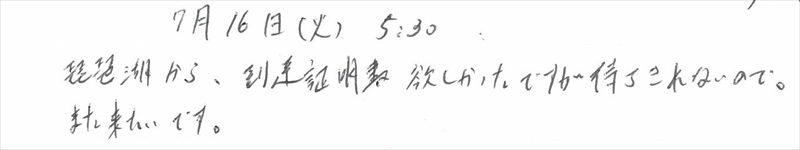 7月16日(火) 5:30
琵琶湖から、到達証明書欲しかったですが待てきれないので。
また来たいです。